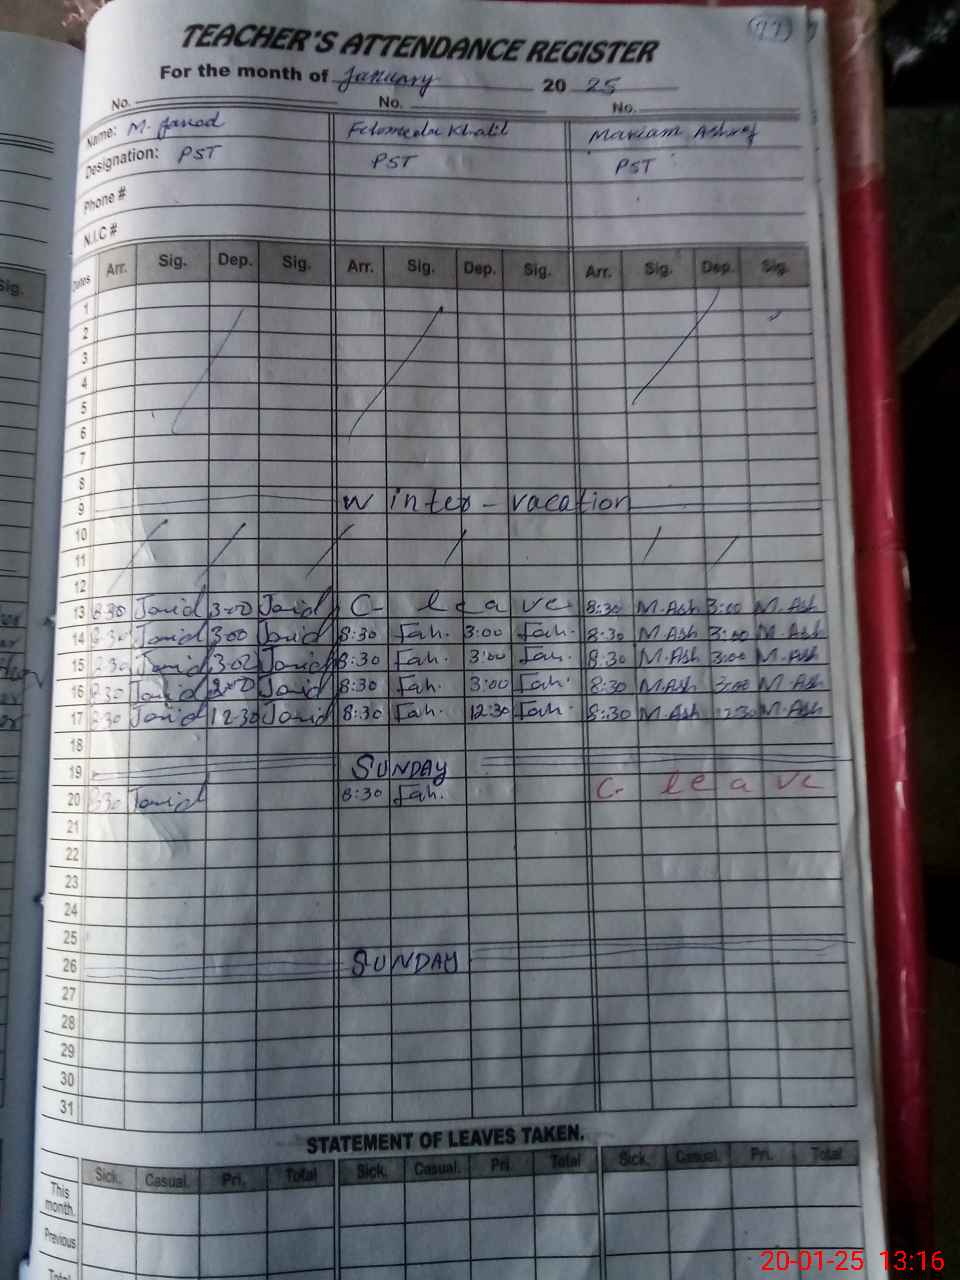 77
TEACHER'S ATTENDANCE REGISTER
For the month of January 20 25
No. No. No.
Name: M. Javed Khalil Mariam Ashraf
Designation: PST PST PST
Phone #
N.I.C #
Dates Arr. Sig. Dep. Sig. Arr. Sig. Dep. Sig. Arr. Sig. Dep. Sig.
1
2
3
4
5
6
7
8
9 Winter - vacation
10
11
12
13 8:30 Javid 3:00 Javid C- leave 8:30 M.Ash 3:00 M.Ash
14 8:30 Javid 3:00 Javid 8:30 Fah. 3:00 Fah. 8:30 M.Ash 3:00 M.Ash
15 8:30 Javid 3:00 Javid 8:30 Fah. 3:00 Fah. 8:30 M.Ash 3:00 M.Ash
16 8:30 Javid 3:00 Javid 8:30 Fah. 3:00 Fah. 8:30 M.Ash 3:00 M.Ash
17 8:30 Javid 12:30 Javid 8:30 Fah. 12:30 Fah. 8:30 M.Ash 12:30 M.Ash
18
19 SUNDAY
20 8:30 Javid 8:30 Fah. C- leave
21
22
23
24
25
26 SUNDAY
27
28
29
30
31
STATEMENT OF LEAVES TAKEN.
Sick. Casual. Pri. Total Sick. Casual. Pri. Total Sick. Casual. Pri. Total
This month.
Previous
Total
20-01-25 13:16